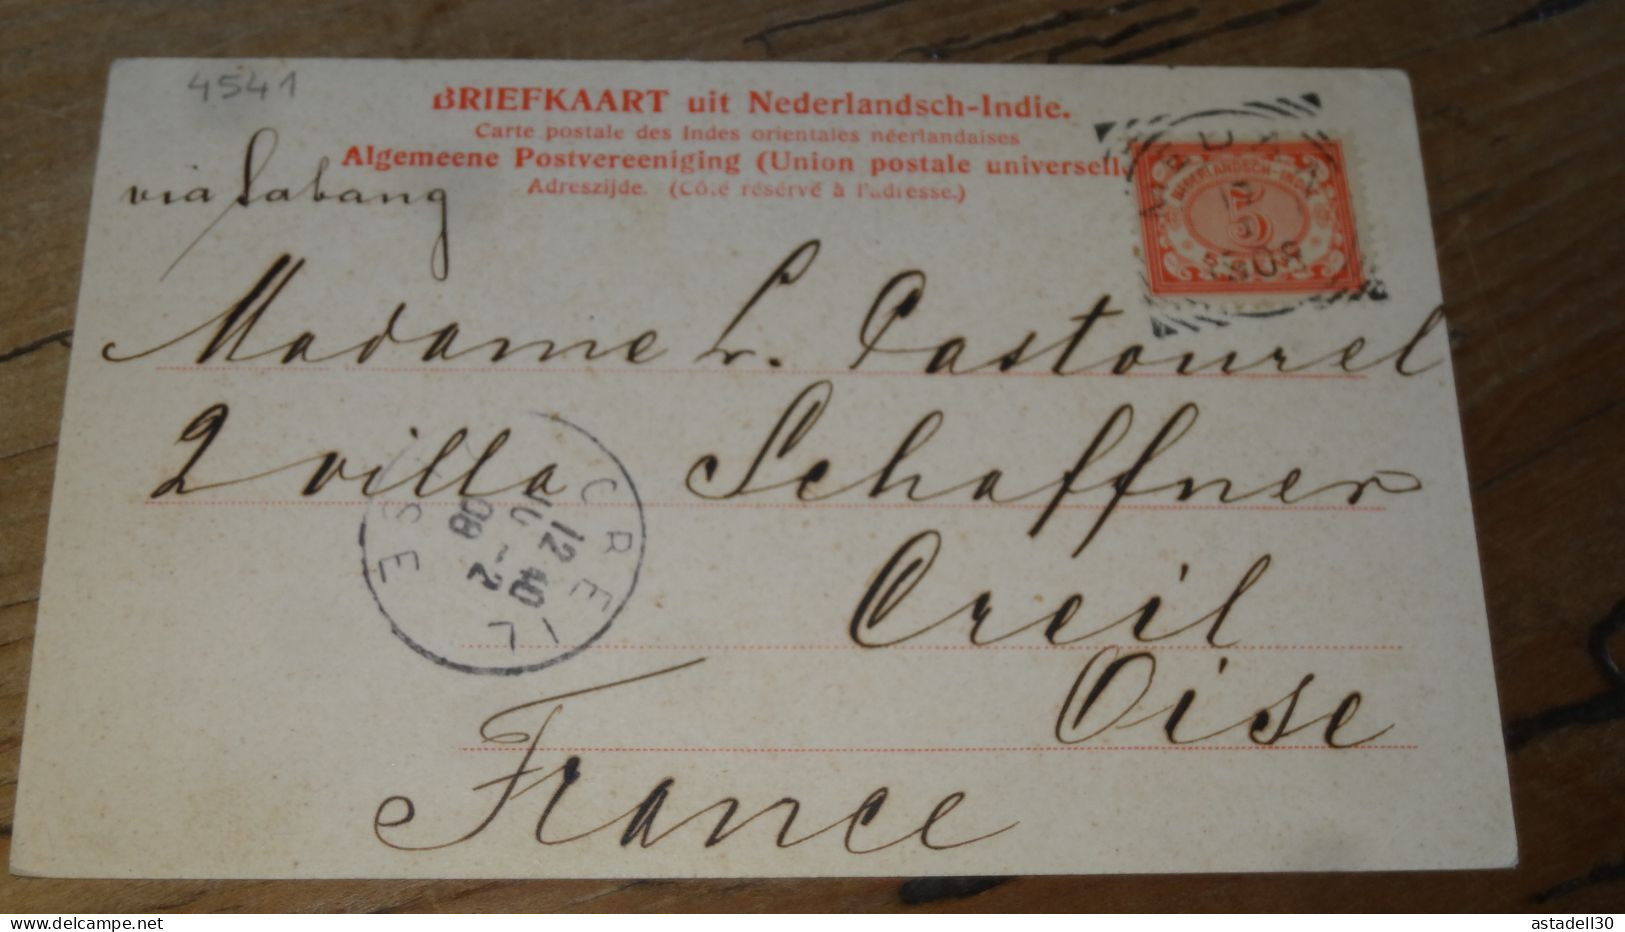 4541
BRIEFKAART uit Nederlandsch-Indie.
Carte postale des Indes orientales néerlandaises
Algemeene Postvereeniging (Union postale universelle
Adreszijde. (Côté réservé à l'adresse.)
via Sabang
NEDERLANDSCH-INDIË
5
1908
Madame L. Pastourel
2 villa Schaffner
Creil
Oise
France
CREIL
12 40
JU -2
08
OISE
Delcampe.net
astadell30